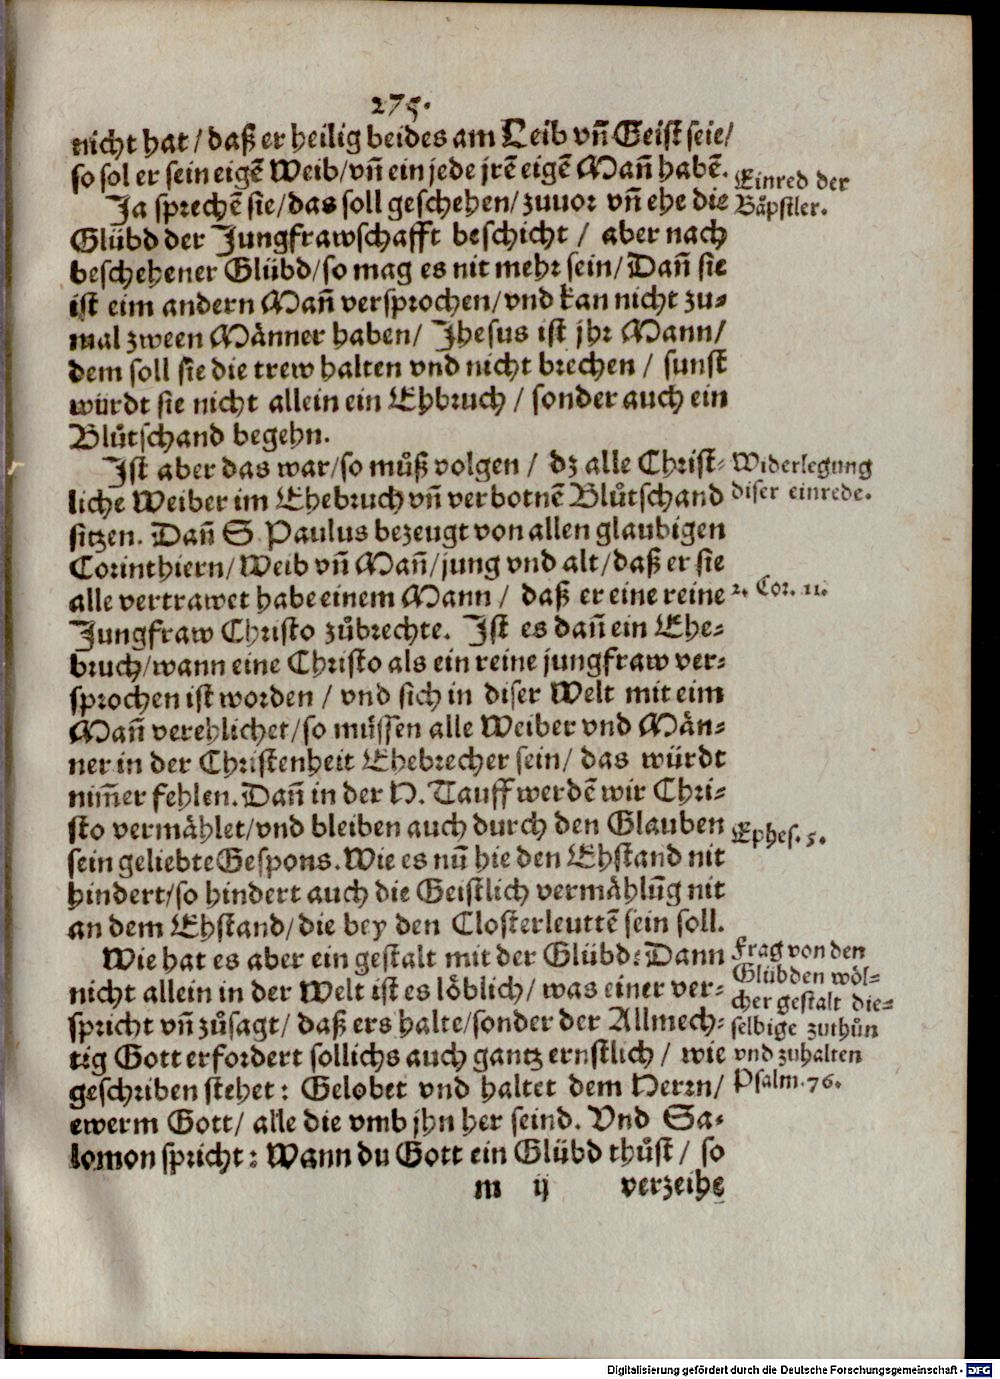 275.
nicht hat / daß er heilig beides am Leib vñ Geist seie/
so sol er sein eigẽ Weib/vñ ein jede jrẽ eigẽ Mañ habẽ.
Einred der
Bäpstler.
Ja sprechẽ sie/das soll geschehen/zuuor vñ ehe die
Glübd der Jungfrawschafft beschicht / aber nach
beschehener Glübd/so mag es nit mehr sein/Dañ sie
ist eim andern Mañ versprochen/vnd kan nicht zu⸗
mal zween Männer haben/ Jhesus ist jhr Mann/
dem soll sie die trew halten vnd nicht brechen / sunst
würdt sie nicht allein ein Ehbruch / sonder auch ein
Blůtschand begehn.
Ist aber das war/so můß volgen / dz alle Christ⸗
liche Weiber im Ehebruch vñ verbotnẽ Blůtschand
Widerlegung
diser einrede.
sitzen. Dañ S. Paulus bezeugt von allen glaubigen
Corinthiern/Weib vñ Mañ/jung vnd alt/daß er sie
alle vertrawet habe einem Mann / daß er eine reine
2. Cor. 11.
Jungfraw Christo zůbrechte. Ist es dañ ein Ehe⸗
bruch/wann eine Christo als ein reine jungfraw ver⸗
sprochen ist worden / vnd sich in diser Welt mit eim
Mañ verehlichet/so müssen alle Weiber vnd Män⸗
ner in der Christenheit Ehebrecher sein/ das würdt
nim̃er fehlen. Dañ in der H. Tauff werdẽ wir Chri⸗
sto vermählet/vnd bleiben auch durch den Glauben
Ephes. 5.
sein geliebte Gespons. Wie es nũ hie den Ehstand nit
hindert/so hindert auch die Geistlich vermählũg nit
an dem Ehstand/die bey den Closterleuttẽ sein soll.
Wie hat es aber ein gestalt mit der Glübd: Dann
nicht allein in der Welt ist es löblich/ was einer ver⸗
spricht vñ zůsagt/ daß ers halte/sonder der Allmech⸗
tig Gott erfordert sollichs auch gantz ernstlich / wie
geschriben stehet: Gelobet vnd haltet dem Herrn/
Frag von den
Glübden wöl⸗
cher gestalt die⸗
selbige zuthůn
vnd zuhalten
Psalm. 76.
ewerm Gott/ alle die vmb jhn her seind. Vnd Sa⸗
lomon spricht: Wann du Gott ein Glübd thůst / so
m ij verzeihe
Digitalisierung gefördert durch die Deutsche Forschungsgemeinschaft - DFG